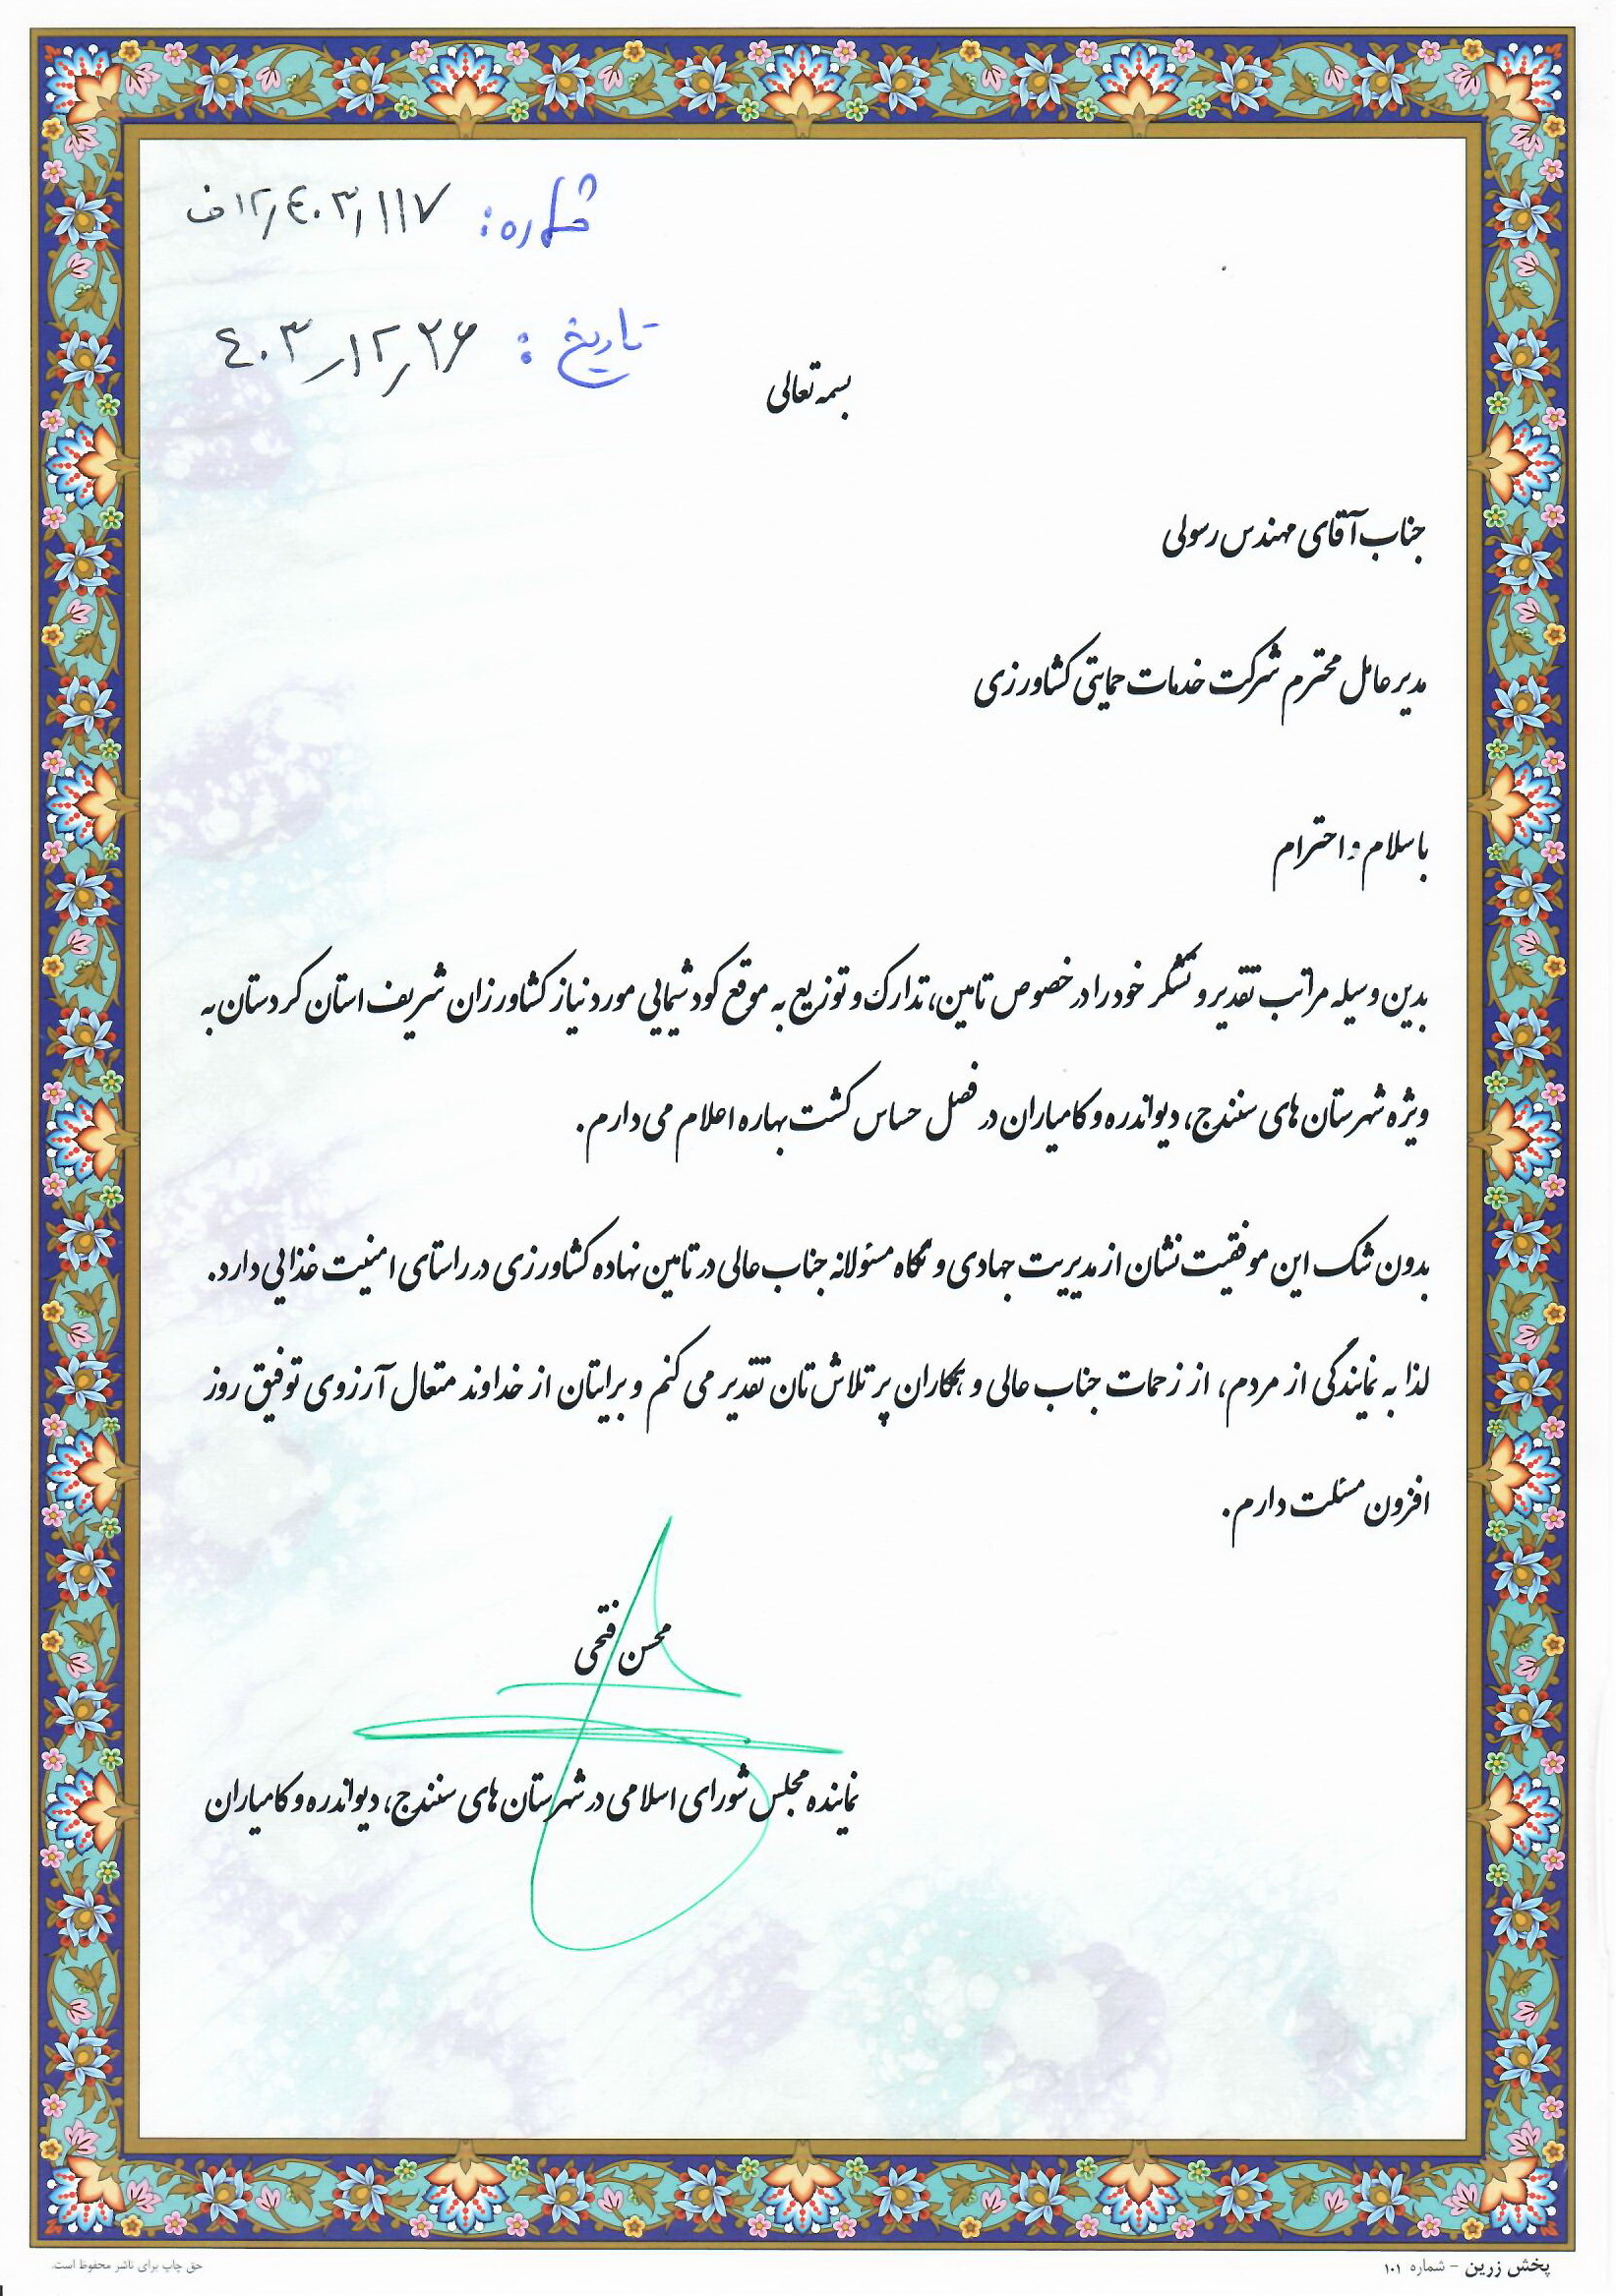 شماره: ۱۱۷/۴۰۳/۱۲ف
تاریخ: ۴۰۳/۱۲/۲۶
بسمه تعالی
جناب آقای مهندس رسولی
مدیرعامل محترم شرکت خدمات حمایتی کشاورزی
باسلام و احترام
بدین وسیله مراتب تقدیر و تشکر خود را در خصوص تامین، تدارک و توزیع به موقع کود شیمایی مورد نیاز کشاورزان شریف استان کردستان به
ویژه شهرستان های سنندج، دیواندره و کامیاران در فصل حساس کشت بهاره اعلام می دارم.
بدون شک این موفقیت نشان از مدیریت جهادی و نگاه مسئولانه جناب عالی در تامین نهاده کشاورزی در راستای امنیت غذایی دارد.
لذا به نمایندگی از مردم، از زحمات جناب عالی و همکاران پر تلاش تان تقدیر می کنم و برایتان از خداوند متعال آرزوی توفیق روز
افزون مسئلت دارم.
محسن فتحی
نماینده مجلس شورای اسلامی در شهرستان های سنندج، دیواندره و کامیاران
پخش زرین - شماره ۱۰۱
حق چاپ برای ناشر محفوظ است.